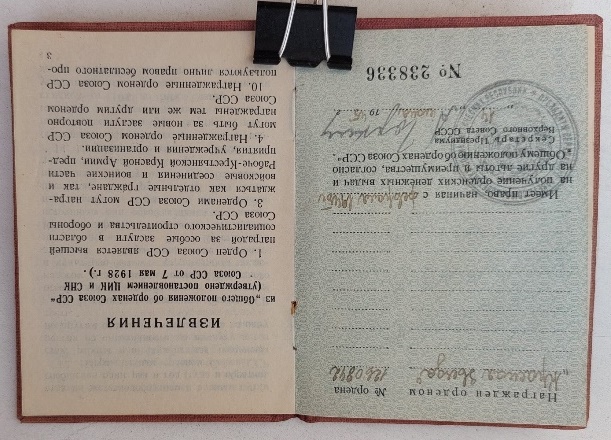 Награжден орденом
№ ордена
„Красная Звезда“
1260842
Имеет право, начиная с февраля 1945 г.
на получение орденских денежных выдач и
на другие льготы и преимущества, согласно
„Общему положению об орденах Союза ССР“.
Секретарь Президиума
Верховного Совета СССР
№ 238336
ИЗВЛЕЧЕНИЯ
из „Общего положения об орденах Союза ССР“
(утверждено постановлением ЦИК и СНК
Союза ССР от 7 мая 1928 г.).
1. Орден Союза ССР является высшей
наградой за особые заслуги в области
социалистического строительства и обороны
Союза ССР.
3. Орденами Союза ССР могут награ-
ждаться как отдельные граждане, так и
войсковые соединения и воинские части
Рабоче-Крестьянской Красной Армии, пред-
приятия, учреждения и организации.
4. Награжденные орденом Союза ССР
могут быть за новые заслуги повторно
награждены тем же или другим орденом
Союза ССР.
10. Награжденные орденом Союза ССР
пользуются лично правом бесплатного про-
3